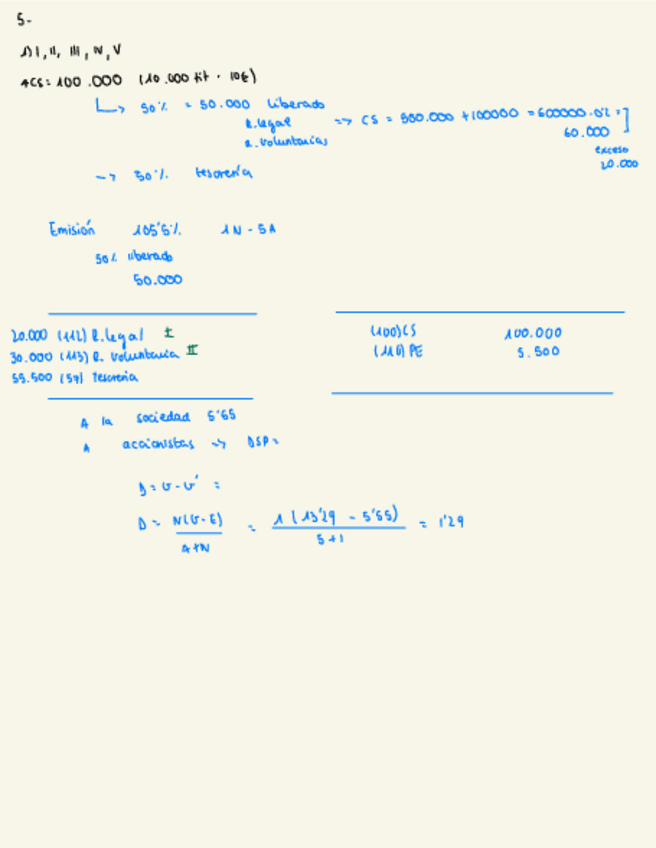 5-
1) I, II, III, IV, V
ACS = 100.000 (10.000 tit · 10€)
↳ 50% = 50.000 liberado
R.legal
R.voluntarias
=> CS = 500.000 + 100000 = 600000.0'2 =]
60.000
exceso
20.000
-> 50% tesorería
Emisión 105'5% 1N - 5A
50% liberado
50.000
20.000 (112) R.legal I
30.000 (113) R. Voluntaria II
55.500 (57) Tesorería
(100) CS 100.000
(110) PE 5.500
A la sociedad 5'55
A accionistas => DSP=
D = V - V' =
D = N(V-E) / A+N = 1(13'29 - 5'55) / 5+1 = 1'29